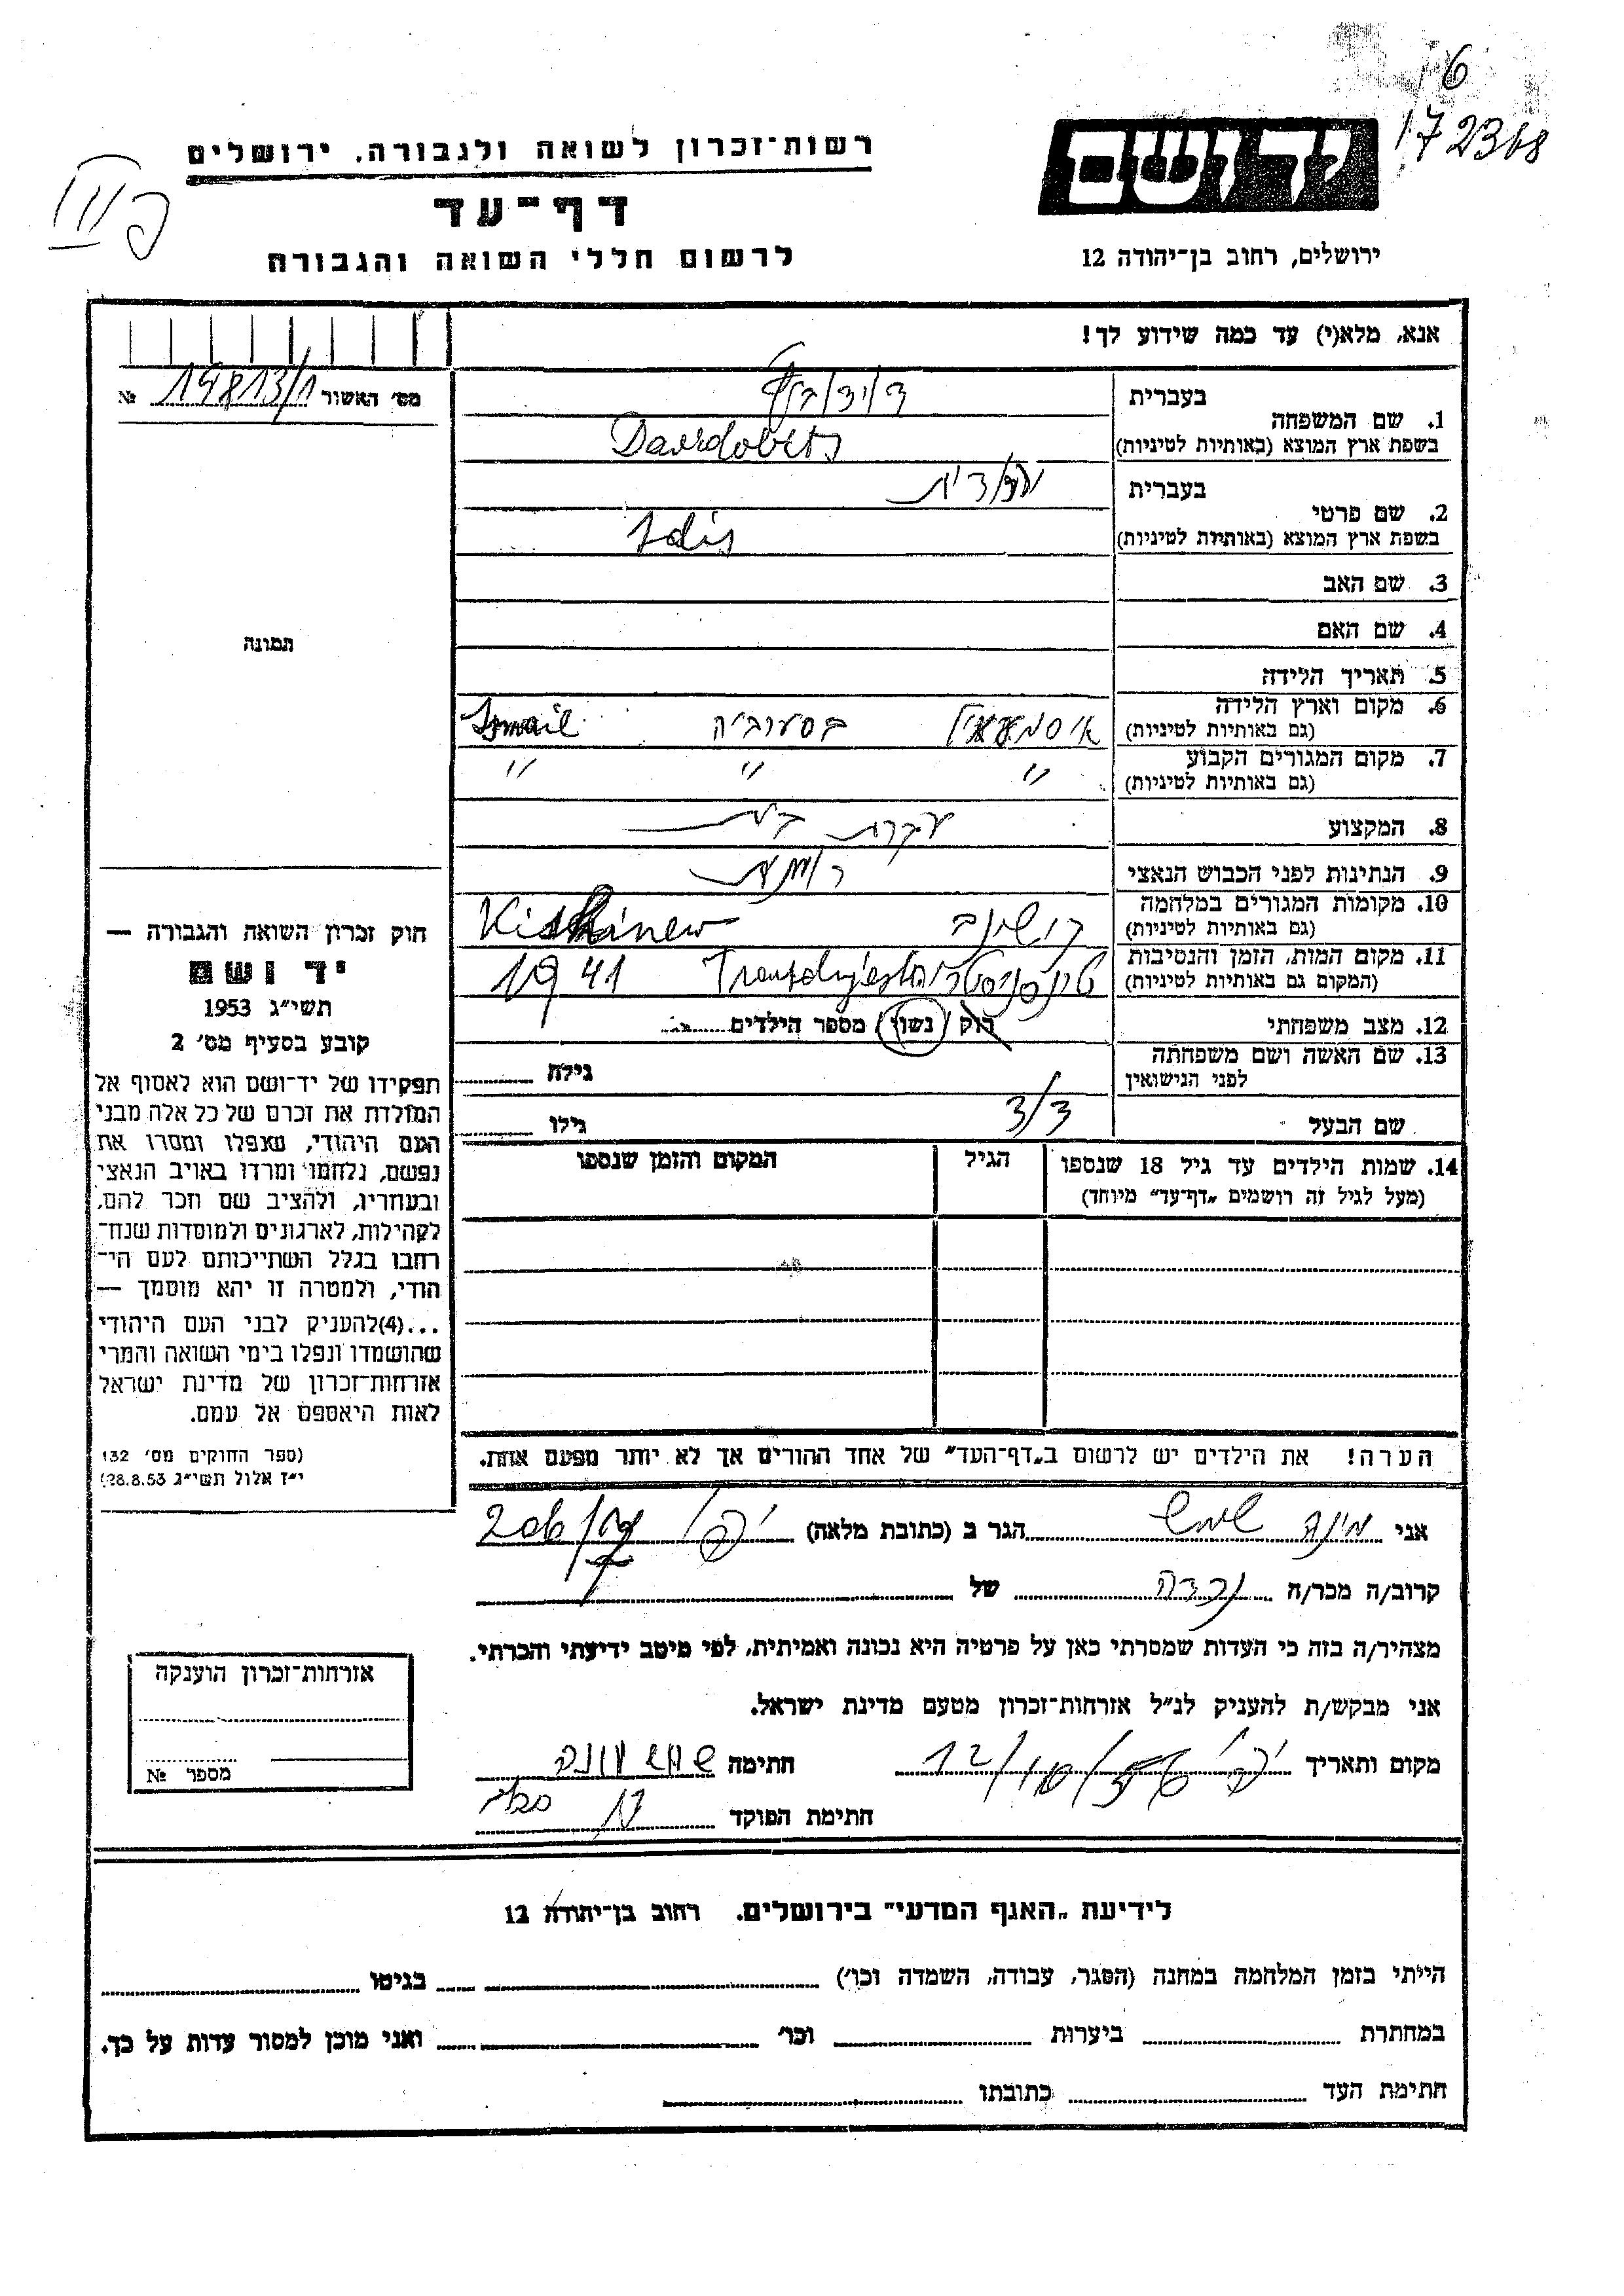 6
172368
יד ושם
ירושלים, רחוב בן־יהודה 12
רשות־זכרון לשואה ולגבורה, ירושלים
דף־עד
לרשום חללי השואה והגבורה
אנא, מלא(י) עד כמה שידוע לך!
מס׳ האשור 19813/1 №
בעברית
1. שם המשפחה
בשפת ארץ המוצא (באותיות לטיניות)
בעברית
2. שם פרטי Idis
בשפת ארץ המוצא (באותיות לטיניות)
3. שם האב
4. שם האם
5. תאריך הלידה
6. מקום וארץ הלידה Ismail
(גם באותיות לטיניות)
7. מקום המגורים הקבוע " " "
(גם באותיות לטיניות)
8. המקצוע עקרת בית
9. הנתינות לפני הכבוש הנאצי
10. מקומות המגורים במלחמה קישינב
(גם באותיות לטיניות)
11. מקום המות, הזמן והנסיבות 1941
(המקום גם באותיות לטיניות)
12. מצב משפחתי רוק / נשוי / מספר הילדים
13. שם האשה ושם משפחתה
לפני הנישואין גילה
שם הבעל דוד גילו
14. שמות הילדים עד גיל 18 שנספו הגיל המקום והזמן שנספו
(מעל לגיל זה רושמים „דף־עד״ מיוחד)
הערה! את הילדים יש לרשום ב„דף־העד״ של אחד ההורים אך לא יותר מפעם אחת.
תמונה
חוק זכרון השואה והגבורה —
יד ושם
תשי״ג 1953
קובע בסעיף מס׳ 2
תפקידו של יד־ושם הוא לאסוף אל
המולדת את זכרם של כל אלה מבני
העם היהודי, שנפלו ומסרו את
נפשם, נלחמו ומרדו באויב הנאצי
ובעוזריו, ולהציב שם וזכר להם,
לקהילות, לארגונים ולמוסדות שנח־
רבו בגלל השתייכותם לעם הי־
הודי, ולמטרה זו יהא מוסמך —
...(4)להעניק לבני העם היהודי
שהושמדו ונפלו בימי השואה והמרי
אזרחות־זכרון של מדינת ישראל
לאות היאספם אל עמם.
(ספר החוקים מס׳ 132
י״ז אלול תשי״ג 28.8.53)
אני הגר ב (כתובת מלאה) יפו
קרוב/ה מכר/ה נכדה של
מצהיר/ה בזה כי העדות שמסרתי כאן על פרטיה היא נכונה ואמיתית, לפי מיטב ידיעתי והכרתי.
אני מבקש/ת להעניק לנ״ל אזרחות־זכרון מטעם מדינת ישראל.
מקום ותאריך יפו 12/10/56 חתימה
חתימת הפוקד
אזרחות־זכרון הוענקה
מספר №
לידיעת „האגף המדעי״ בירושלים. רחוב בן־יהודה 12
הייתי בזמן המלחמה במחנה (הסגר, עבודה, השמדה וכו׳) בגיטו
במחתרת ביערות וכו׳ ואני מוכן למסור עדות על כך.
חתימת העד כתובתו